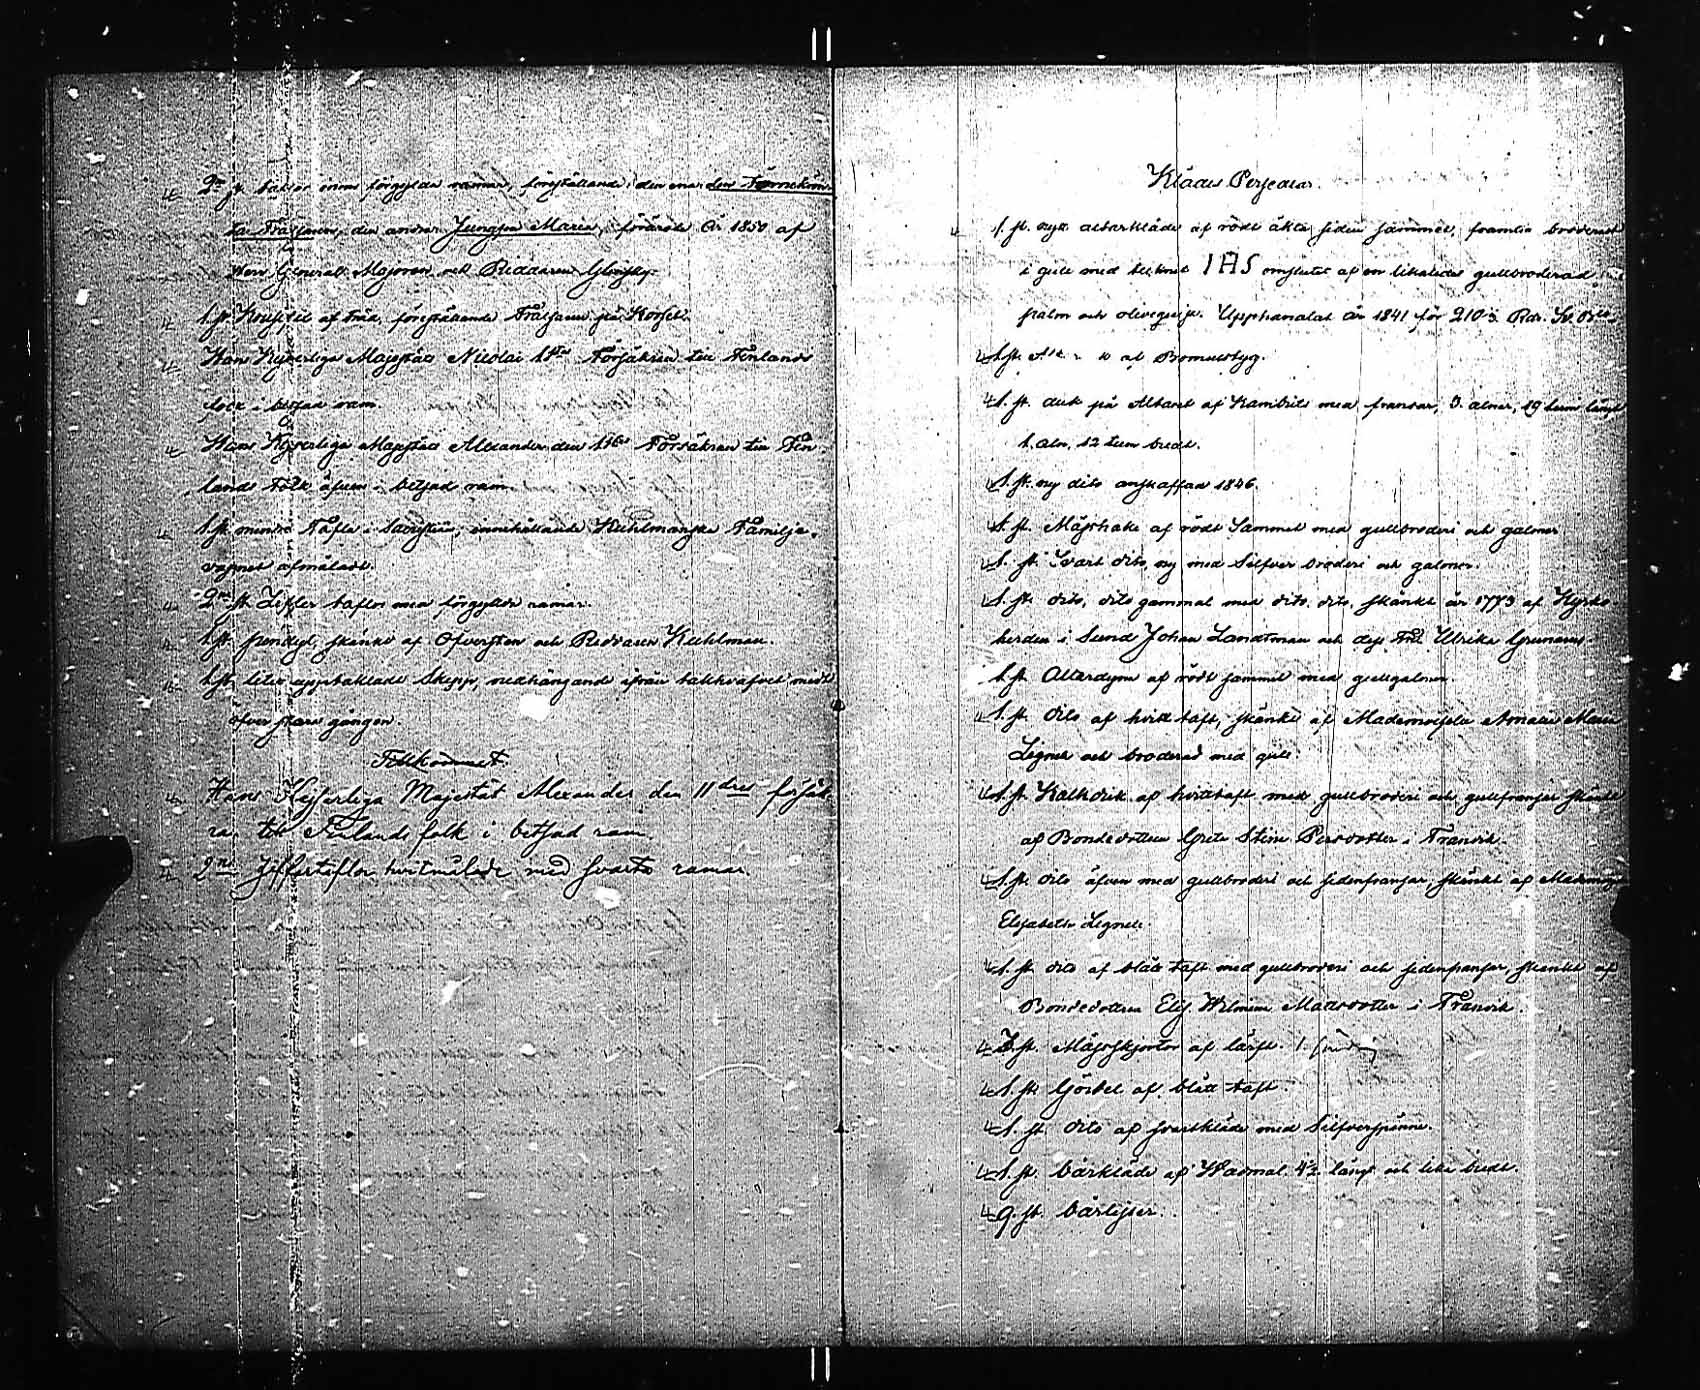 2ne st. taflor inom förgyllda ramar, föreställande: den ena den Törnekrön-
ta Frälsaren, den andra Jungfru Maria, förärade år 1850 af
Herr General Majoren och Riddaren
1. st. Krusifix af träd, föreställande Frälsaren på Korset.
Hans Kejserliga Majestäts Nicolai 1sta Försäkran till Finlands
folk i betsad ram.
Hans Kejserliga Majestäts Alexander den 1stes Försäkran till Fin-
lands Folk äfven i betsad ram.
1. st. mindre Tafla i Sacristian, innehållande Kuhlmanska Familje-
vapnet afmåladt.
2ne st. Ziffer taflor med förgyllda ramar.
1. st. pendyl, skänkt af Öfversten och Riddaren Kuhlman.
1. st. litet upptacklade Skepp, nedhängande ifrån takhvalfvet midt
öfver stora gången.
Tillkommet.
Hans Kejserliga Majestät Alexander den II dres försäk-
ran till Finlands folk i betsad ram.
2ne Ziffertaflor hvitmålade med svarta ramar.
Klädes Persedlar.
1. st. nytt altarkläde af rödt äkta siden sammet, framtill broderadt
i gull med tecknet IHS omslutet af en likaledes gullbroderad
palm och olivequist. Upphandlat år 1841 för 210 Rdr. Sv. Bco
1. st. af Bomullstyg.
1. st. duk på Altaret af Kambrik med fransar, 3. alnar, 19 tum långt
1. aln, 12 tum bredt.
1. st. ny dito anskaffad 1846.
1. st. Mässhake af rödt Sammet med gullbroderi och galoner
1. st. Svart dito, ny med Silfver broderi och galoner.
1. st. dito, dito gammal med dito, dito, skänkt år 1773 af Kyrko-
herden i Sund Johan Landtman och dess Fru Ulrika
1. st. Altardyna af rödt sammet med gullgaloner.
1. st. dito af hvitt taft, skänkt af Mademoiselle Amalia Maria
Lignell och broderad med gull.
1. st. Kalkdük af hvitt taft med gullbroderi och gullfransar skänkt
af Bondedottren Greta Stina Persdotter i Tranvik.
1. st. dito äfven med gullbroderi och sidenfransar, skänkt af
Elisabeth Lignell.
1. st. dito af blått taft med gullbroderi och sidenfransar, skänkt af
Bondedottren Elis. Wilmina Mattsdotter i Tranvik.
3. st. Mässskjortor af lärft.
1. st. Gördel af blått taft.
1. st. dito af svart kläde med Silfverspänne.
1. st. bårkläde af Wadmal 4½ långt och lika bredt.
9. st. bårlister.